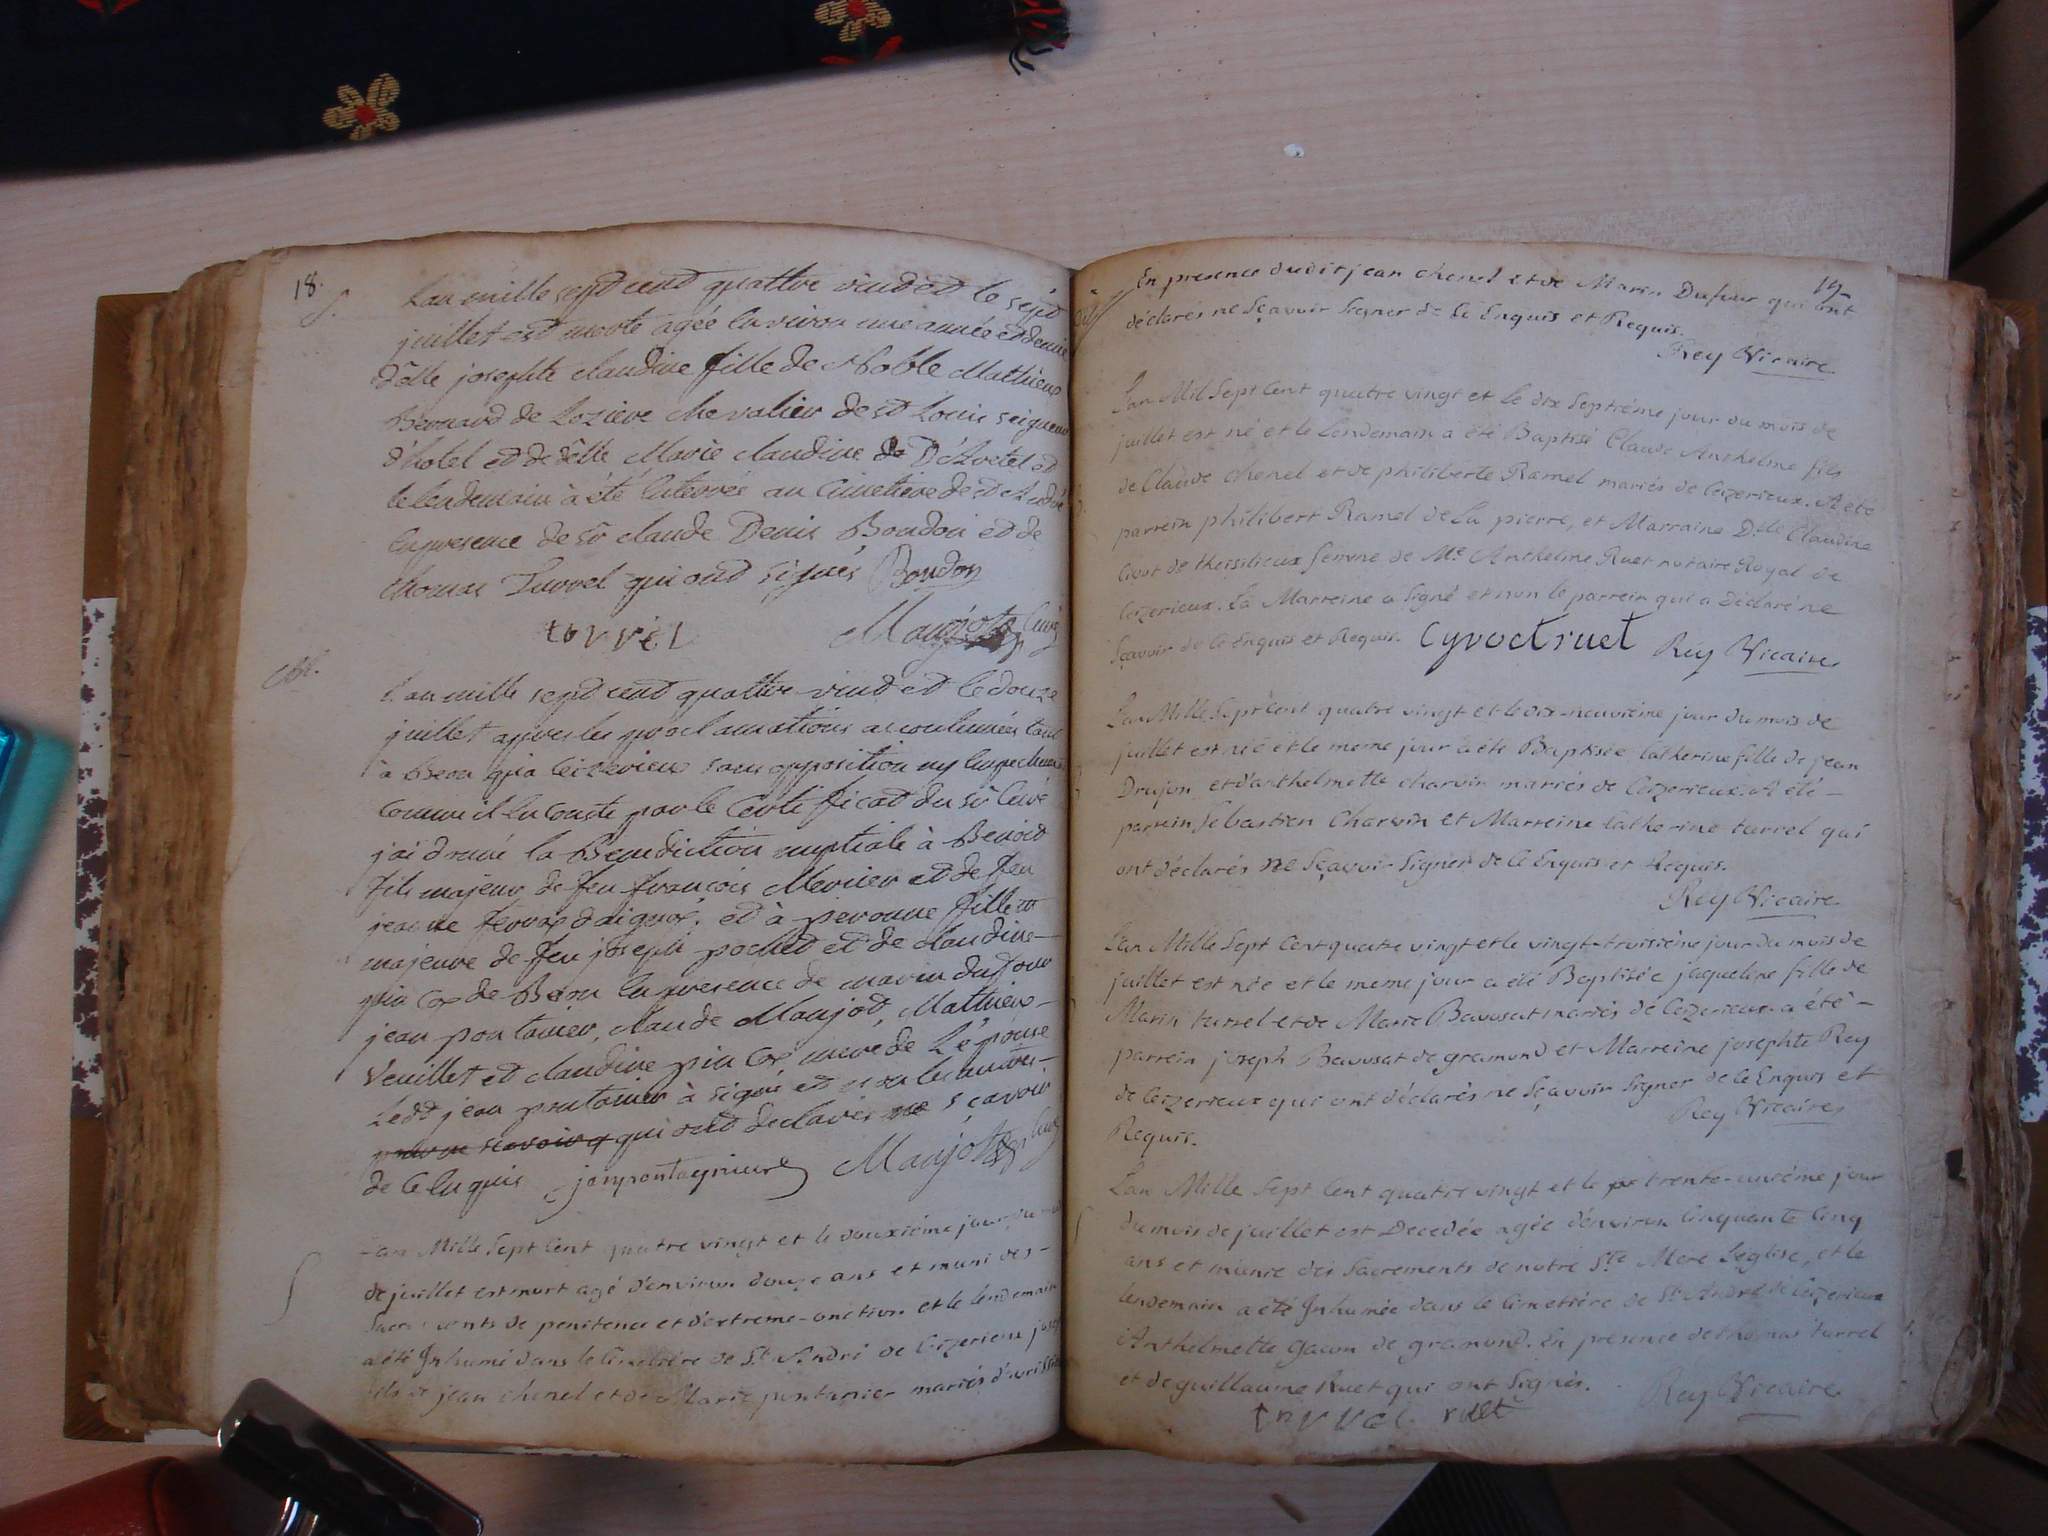 18.
S.
L'an mille sept cent quattre vint et le sept
juillet est morte agée environ une année et demie
dëlle josephte claudine fille de Noble Mathieu
Bernard de Lozieve chevalier de st Louis seigneur
d'hotel et de dëlle Marie claudine de D'Avetel et
le lendemain à été enterrée au cimetiere de st André
en presence de sr claude Denis Boudon et de
thomas Turrel qui ont signés Boudon
turrel Maujot Curé
M.
L'an mille sept cent quattre vint et le douze
juillet apres les proclamations accoutumées tant
à Beon qu'a Ceizerieu sans opposition ny empechement
comme il en conste par le certificat du sr Curé
j'ai donné la Benediction nuptiale à Benoit
fils majeur de feu françois Mercier et de feu
jeanne ferrox d'aignox, et à peronne fille
majeure de feu joseph pochet et de claudine
pin de Beon en presence de marin dufour
jean pontanier, claude Maujot, Mathieu
Veuillet et claudine pin mere de L'épouse
Ledt jean pontanier à signé et non les autres
qui ont declarés ne sçavoir
de ce enquis janpontagnieure Maujot Curé
S
L'an Mille Sept Cent quatre vingt et le douxiéme jour du
de juillet est mort agé d'environ douze ans et muni des
Sacrements de penitence et d'extreme-onction et le lendemain
a été Inhumé dans le Cimetiére de St André de Ceizerieux
fils de jean chenel et de Marie pontanier mariés
19
En presence dudit jean chenel et de Marin Dufour qui ont
déclarés ne sçavoir signer de Ce Enquis et Requis.
Rey Vicaire.
L'an Mil Sept Cent quatre vingt et le dix Septiéme jour du mois de
juillet est né et le Lendemain a été Baptisé Claude Anthelme fils
de Claude chenel et de philiberte Ramel mariés de Ceizerieux. A été
parrein philibert Ramel de La pierre, et Marraine D.lle Claudine
Civot de theisilieux femme de Me. Anthelme Ruet notaire Royal de
Ceizerieux. La Marreine a signé et non le parrein qui a déclaré ne
Sçavoir de Ce Enquis et Requis. Cyvoct ruet Rey Vicaire
L'an Mille Sept Cent quatre vingt et le dix-neuviéme jour du mois de
juillet est née et le meme jour a été Baptisée Catherine fille de jean
Drujon et d'anthelmette charvin mariés de Ceizerieux. A été
parrein Sebastien Charvin et Marreine Catherine turrel qui
ont déclarés ne Sçavoir Signer de Ce Enquis et Requis.
Rey Vicaire.
L'an Mille Sept Cent quatre vingt et le vingt-troisiéme jour du mois de
juillet est née et le meme jour a été Baptisée jacqueline fille de
Marin turrel et de Marie Bavosat mariés de Ceizerieux. a été
parrein joseph Bavosat de gramond et Marreine josephte Rey
de Ceizerieux qui ont déclarés ne Sçavoir Signer de Ce Enquis et
Requis.
Rey Vicaire
L'an Mille Sept Cent quatre vingt et le trente-uniéme jour
du mois de juillet est Decedée agée d'environ Cinquante Cinq
ans et munie des Sacrements de notre Ste Mere L'eglise, et le
lendemain a été Inhumée dans le Cimetiére de St André de Ceizerieux
Anthelmette gacon de gramond. En presence de thomas turrel
et de guillaume Ruet qui ont Signés. Rey Vicaire
turrel ruet